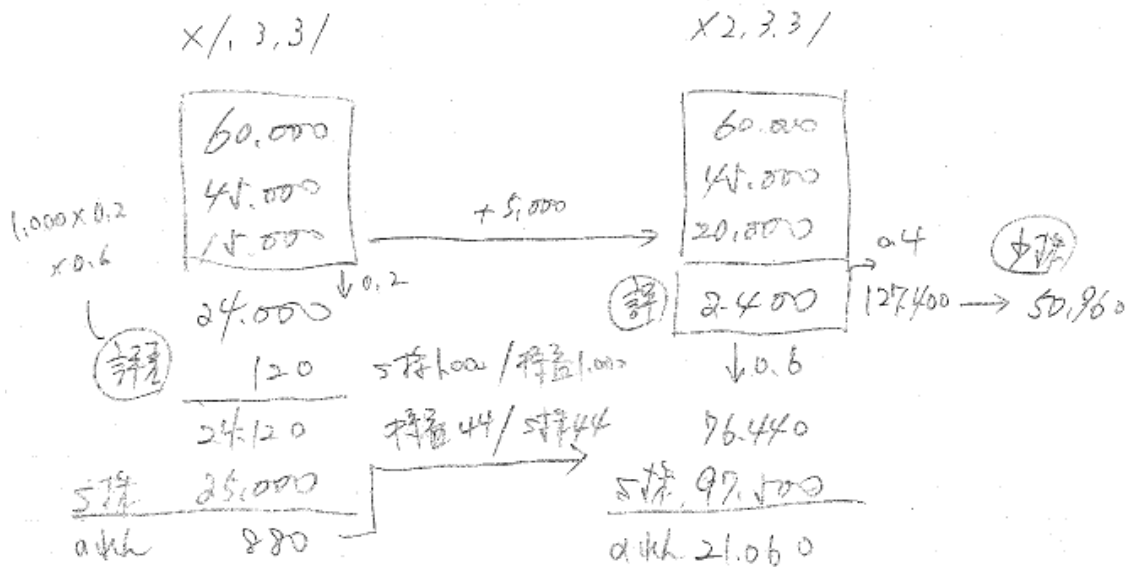 X1.3.31
60.000
45.000
15.000
1.000×0.2
×0.6
↓0.2
24.000
評
120
24.120
S株 25.000
のれん 880
+5,000
S株1.000/持益1.000
持益44/S株44
X2.3.31
60.000
45.000
20.000
評 2.400
0.4
127.400 → 50.960
↓0.6
76.440
S株 97.500
のれん 21.060